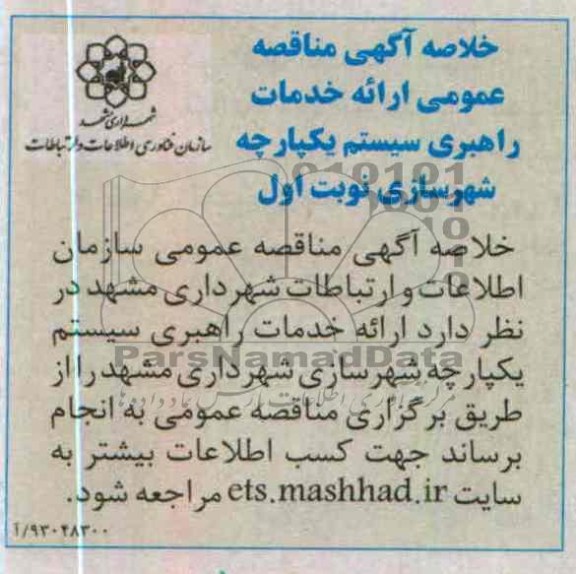 خلاصه آگهی مناقصه
عمومی ارائه خدمات
راهبری سیستم یکپارچه
شهرسازی نوبت اول
شهرداری مشهد
سازمان فناوری اطلاعات و ارتباطات
خلاصه آگهی مناقصه عمومی سازمان
اطلاعات و ارتباطات شهرداری مشهد در
نظر دارد ارائه خدمات راهبری سیستم
یکپارچه شهرسازی شهرداری مشهد را از
طریق برگزاری مناقصه عمومی به انجام
برساند جهت کسب اطلاعات بیشتر به
سایت ets.mashhad.ir مراجعه شود.
۹۳۰۴۸۳۰۰/آ
ParsNamadData